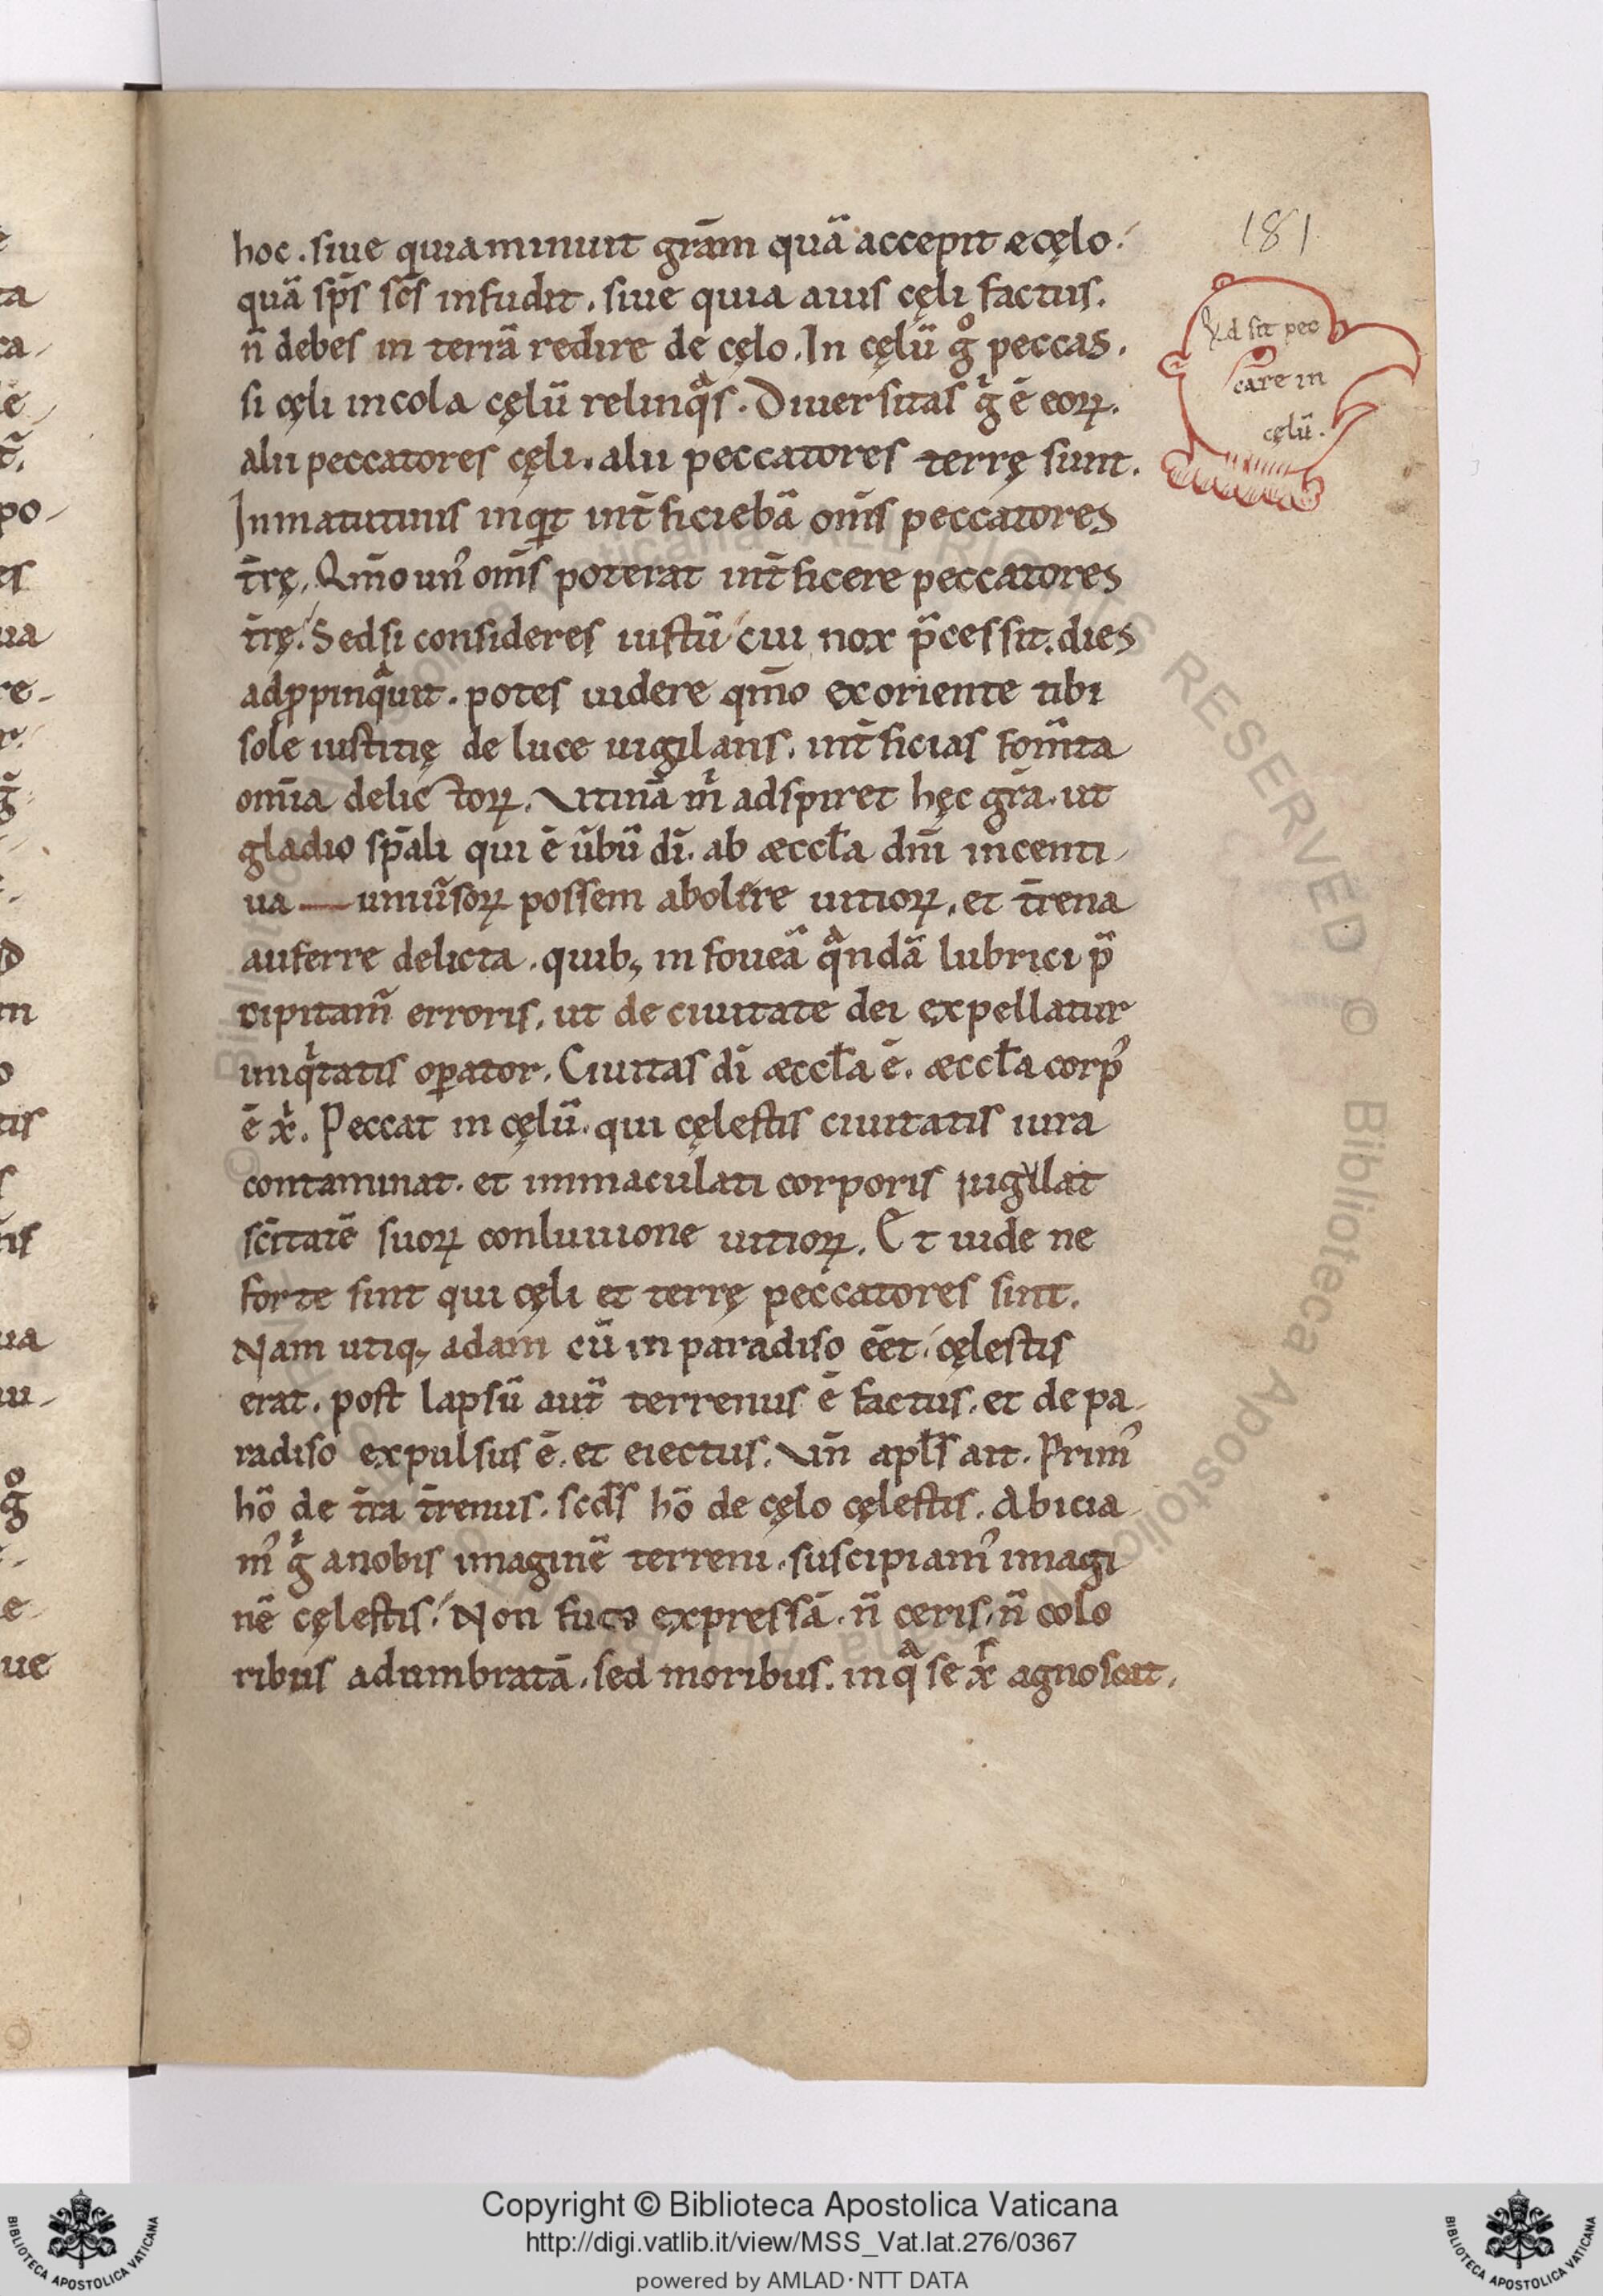 181
hoc. siue quia minuit grām quā accepit e cęlo.
quā sp̄s sc̄s infudit. siue quia auis cęli factus.
n̄ debes in terrā redire de cęlo. In cęlū gͦ peccas.
si cęli incola cęlū relinqͣs. Diuersitas gͥ ē eoꝝ.
alii peccatores cęli. alii peccatores terrę sunt.
In matutinis inqͥt int̄ficiebā om̄s peccatores
t̄rę. Qm̄o un᾽ om̄s poterat int̄ficere peccatores
t̄rę. Sed si consideres iustū cui nox p̄cessit. dies
adꝓpinqͣuit. potes uidere qm̄o exoriente tibi
sole iustitię de luce uigilans. int̄ficias fom̄ta
om̄ia delictoꝝ. Utinā m̄ adspiret hęc gr̄a. ut
gladio sp̄ali qui ē ūbū dī. ab æccl̄a dn̄i incenti
ua uniūsoꝝ possem abolere uitioꝝ. et t̄rena
auferre delicta. quib; in foueā qͣndā lubrici p̄
cipitam̄ erroris. ut de ciuitate dei expellatur
iniqͥtatis oꝑator. Ciuitas dī æccl̄a ē. æccl̄a corp᾽
ē xͥ. Peccat in cęlū. qui cęlestis ciuitatis iura
contaminat. et immaculati corporis iugulat
sc̄itatē suoꝝ conluuione uitioꝝ. Et uide ne
forte sint qui cęli et terrę peccatores sint.
Nam utiq; adam cū in paradiso eēt. cęlestis
erat. post lapsū aut̄ terrenus ē factus. et de pa
radiso expulsus ē. et eiectus. Un̄ apl̄s ait. Prim᾽
hō de t̄ra t̄renus. scd̄s hō de cęlo cęlestis. Abicia
m᾽ gͥ a nobis imaginē terreni. suscipiam᾽ imagi
nē cęlestis. Non fuco expressā. n̄ ceris. n̄ colo
ribus adumbratā. sed moribus. in qͣ se x̄r agnoscit.
Qd sit pec
care in
cęlū.
Copyright © Biblioteca Apostolica Vaticana
http://digi.vatlib.it/view/MSS_Vat.lat.276/0367
powered by AMLAD·NTT DATA
BIBLIOTECA APOSTOLICA VATICANA
BIBLIOTECA APOSTOLICA VATICANA